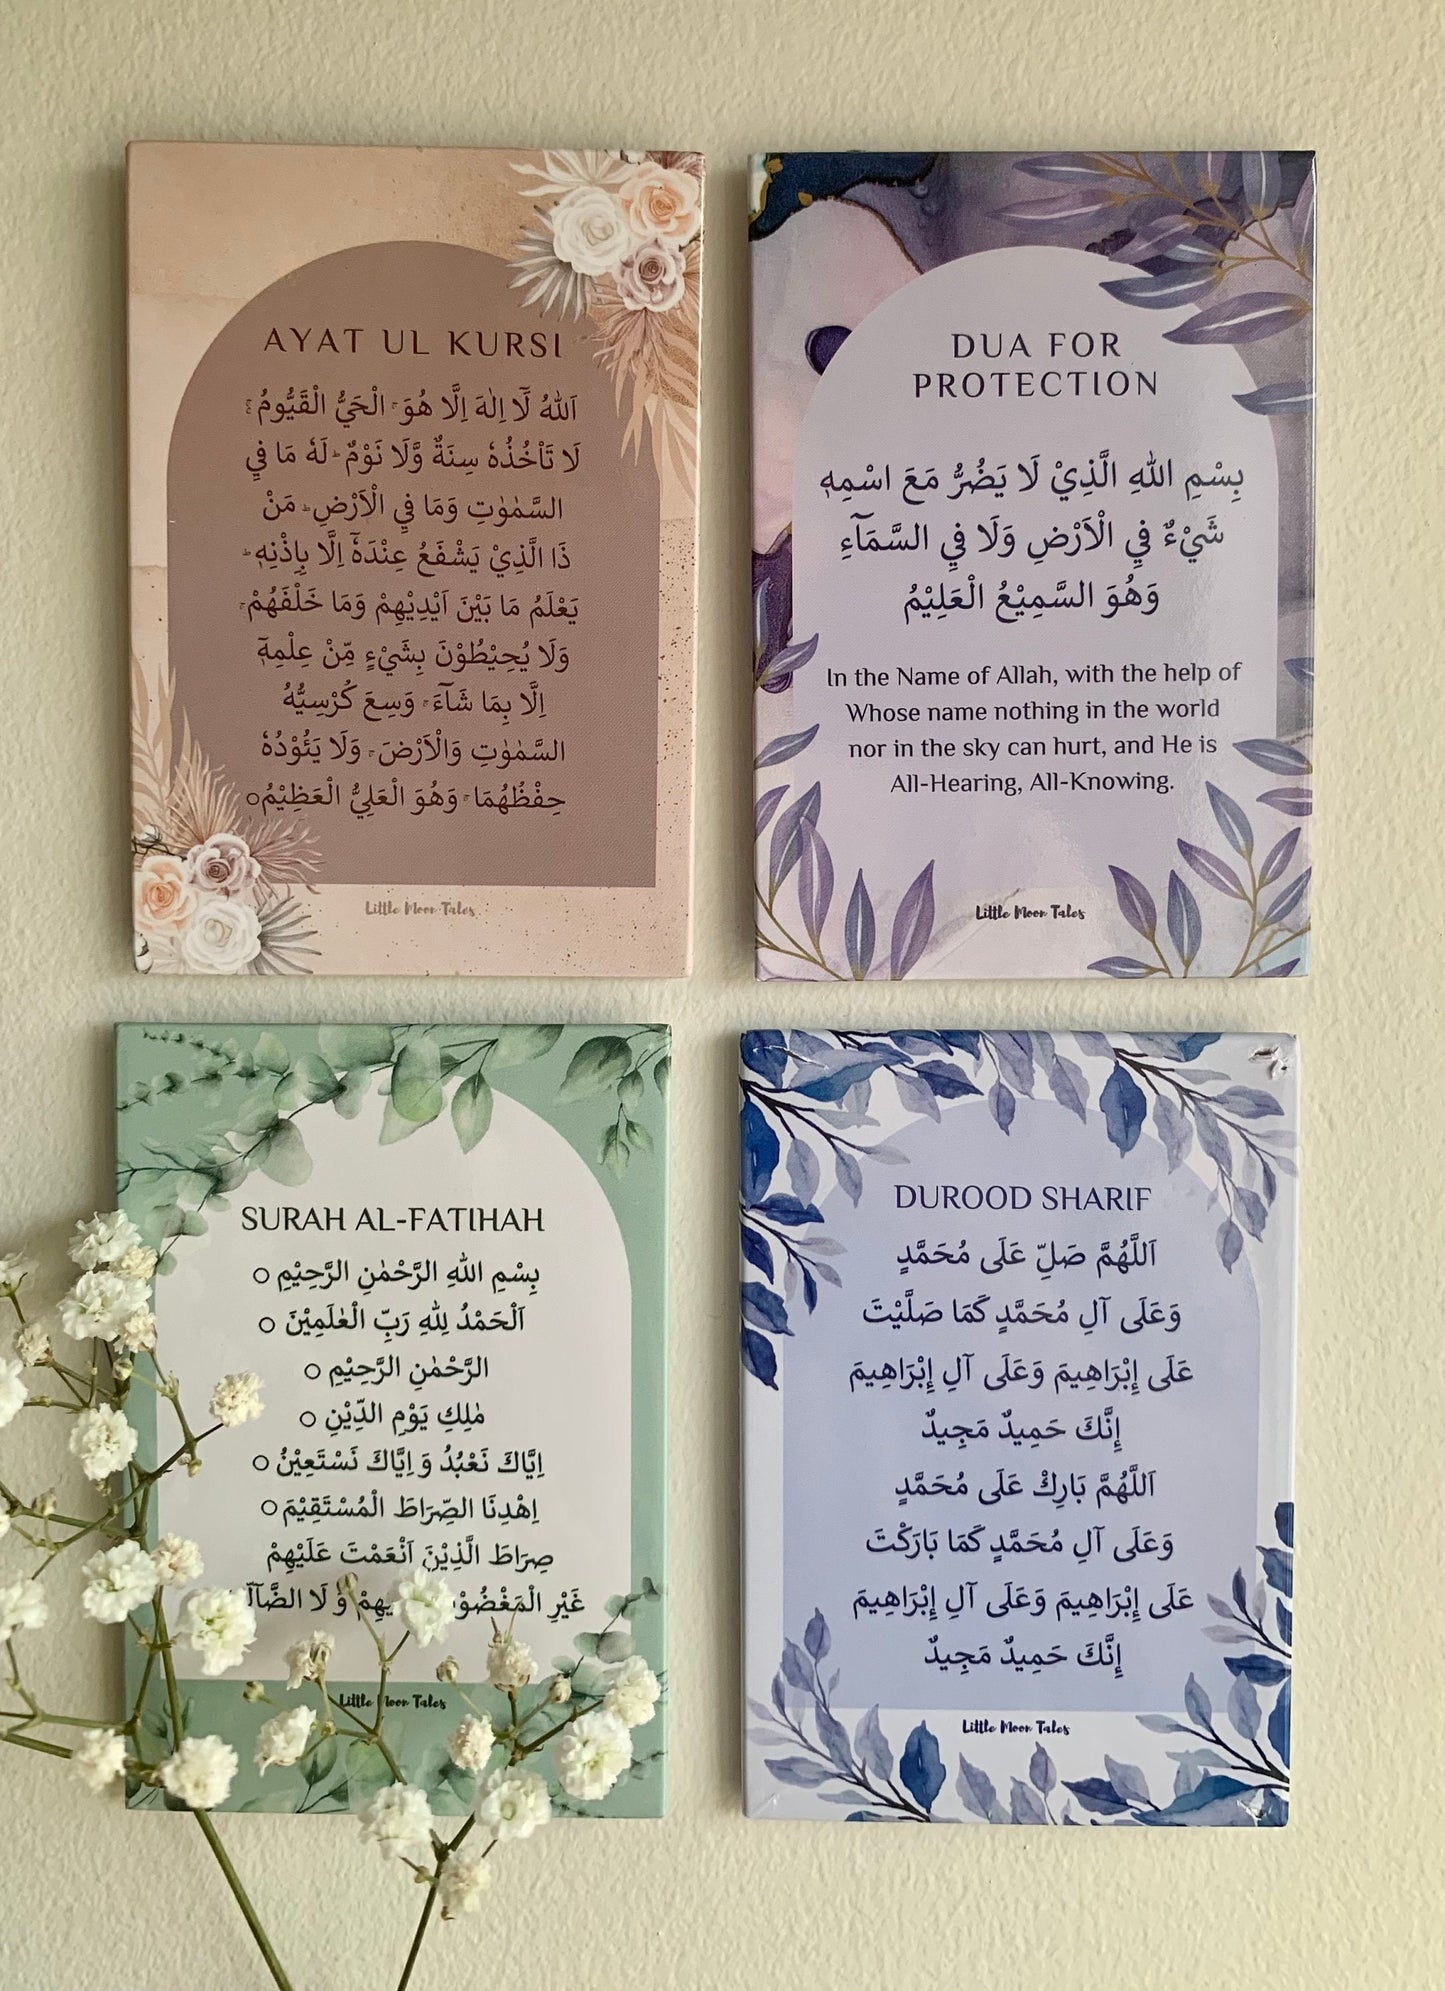 AYAT UL KURSI
اَللّٰهُ لَٓا اِلٰهَ اِلَّا هُوَ ۚ الْحَيُّ الْقَيُّومُ ۚ
لَا تَاْخُذُهٗ سِنَةٌ وَّلَا نَوْمٌ ؕ لَهٗ مَا فِي
السَّمٰوٰتِ وَمَا فِي الْاَرْضِ ؕ مَنْ
ذَا الَّذِيْ يَشْفَعُ عِنْدَهٗٓ اِلَّا بِاِذْنِهٖ ؕ
يَعْلَمُ مَا بَيْنَ اَيْدِيْهِمْ وَمَا خَلْفَهُمْ ۚ
وَلَا يُحِيْطُوْنَ بِشَيْءٍ مِّنْ عِلْمِهٖٓ
اِلَّا بِمَا شَآءَ ۚ وَسِعَ كُرْسِيُّهُ
السَّمٰوٰتِ وَالْاَرْضَ ۚ وَلَا يَئُوْدُهٗ
حِفْظُهُمَا ۚ وَهُوَ الْعَلِيُّ الْعَظِيْمُ ○
Little Moon Tales
DUA FOR
PROTECTION
بِسْمِ اللّٰهِ الَّذِيْ لَا يَضُرُّ مَعَ اسْمِهٖ
شَيْءٌ فِي الْاَرْضِ وَلَا فِي السَّمَآءِ
وَهُوَ السَّمِيْعُ الْعَلِيْمُ
In the Name of Allah, with the help of
Whose name nothing in the world
nor in the sky can hurt, and He is
All-Hearing, All-Knowing.
Little Moon Tales
SURAH AL-FATIHAH
بِسْمِ اللّٰهِ الرَّحْمٰنِ الرَّحِيْمِ ○
اَلْحَمْدُ لِلّٰهِ رَبِّ الْعٰلَمِيْنَ ○
الرَّحْمٰنِ الرَّحِيْمِ ○
مٰلِكِ يَوْمِ الدِّيْنِ ○
اِيَّاكَ نَعْبُدُ وَ اِيَّاكَ نَسْتَعِيْنُ ○
اِهْدِنَا الصِّرَاطَ الْمُسْتَقِيْمَ ○
صِرَاطَ الَّذِيْنَ اَنْعَمْتَ عَلَيْهِمْ
غَيْرِ وَ لَا
Little Moon Tales
DUROOD SHARIF
اَللَّهُمَّ صَلِّ عَلَى مُحَمَّدٍ
وَعَلَى آلِ مُحَمَّدٍ كَمَا صَلَّيْتَ
عَلَى إِبْرَاهِيمَ وَعَلَى آلِ إِبْرَاهِيمَ
إِنَّكَ حَمِيدٌ مَجِيدٌ
اَللَّهُمَّ بَارِكْ عَلَى مُحَمَّدٍ
وَعَلَى آلِ مُحَمَّدٍ كَمَا بَارَكْتَ
عَلَى إِبْرَاهِيمَ وَعَلَى آلِ إِبْرَاهِيمَ
إِنَّكَ حَمِيدٌ مَجِيدٌ
Little Moon Tales